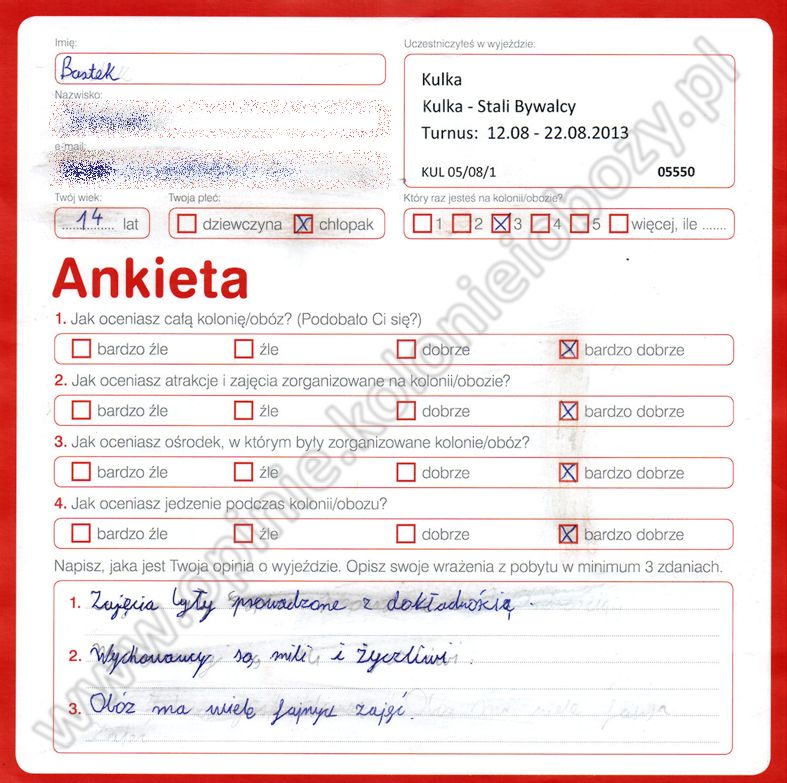 Imię:
Uczestniczyłeś w wyjeździe:
Bartek
Kulka
Nazwisko:
Kulka - Stali Bywalcy
Turnus: 12.08 - 22.08.2013
e-mail:
KUL 05/08/1 05550
Twój wiek: Twoja płeć: Który raz jesteś na kolonii/obozie?
14 lat dziewczyna chłopak 1 2 3 4 5 więcej, ile .......
Ankieta
1. Jak oceniasz całą kolonię/obóz? (Podobało Ci się?)
bardzo źle źle dobrze bardzo dobrze
2. Jak oceniasz atrakcje i zajęcia zorganizowane na kolonii/obozie?
bardzo źle źle dobrze bardzo dobrze
3. Jak oceniasz ośrodek, w którym były zorganizowane kolonie/obóz?
bardzo źle źle dobrze bardzo dobrze
4. Jak oceniasz jedzenie podczas kolonii/obozu?
bardzo źle źle dobrze bardzo dobrze
Napisz, jaka jest Twoja opinia o wyjeździe. Opisz swoje wrażenia z pobytu w minimum 3 zdaniach.
1. Zajęcia były prowadzone z dokładnością.
2. Wychowawcy są mili i życzliwi.
3. Obóz ma wiele fajnych zajęć.
www.opinie.kolonieiobozy.pl